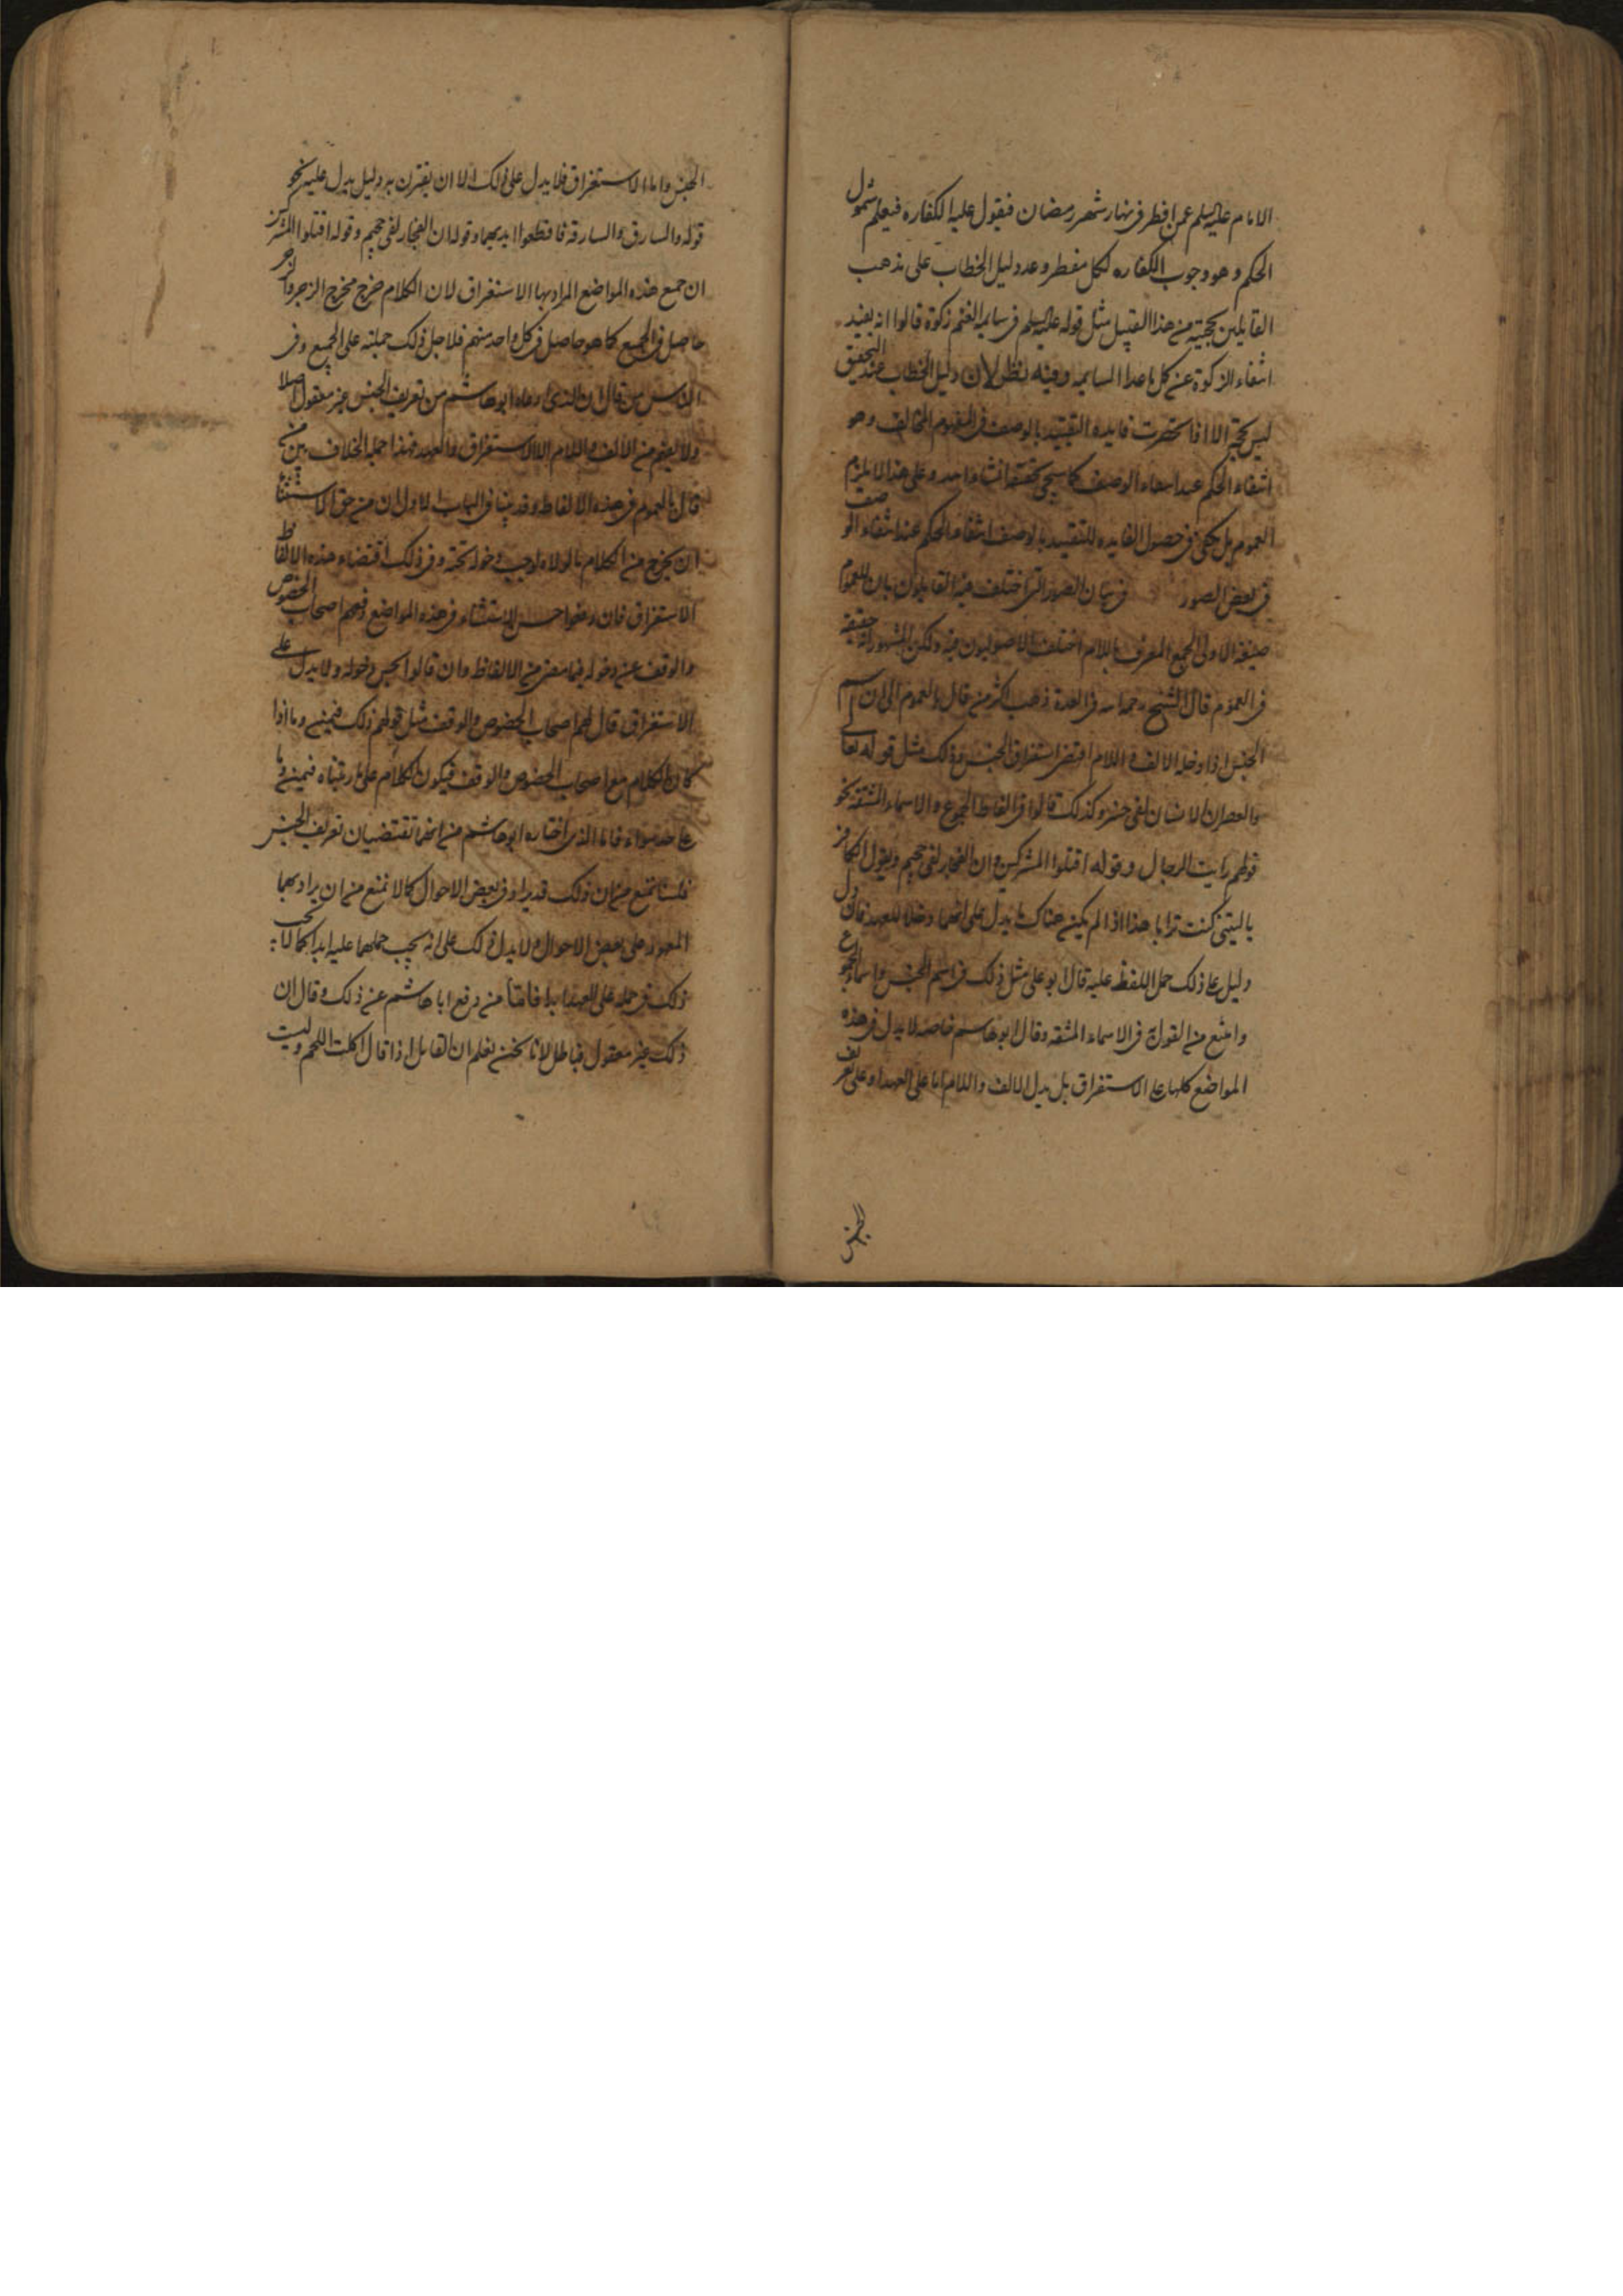 الامام عليه السلم عمن افطر فى نهار شهر رمضان فيقول عليه الكفاره فيعلم شمول
الحكم وهو وجوب الكفاره لكل مفطر وعد دليل الخطاب على مذهب
القايلين بحجيته من هذا القبيل مثل قوله عليه السلم فى سايمه الغنم زكوة قالوا انه يفيد
انتفاء الزكوة عن كل ما عدا السايمه وفيه نظر لان دليل الخطاب عند التحقيق
ليس بحجة الا اذا انحصرت فايده التقييد بالوصف فى المفهوم المخالف وهو
انتفاء الحكم عند انتفاء الوصف كما سيجى تحقيقه انشاء احد وعلى هذا لا يلزم
العموم بل يكفى فى حصول الفايده للتقييد بالوصف انتفاء الحكم عند انتفاء الوصف
فى بعض الصور فى بيان الصور التى اختلف فيه القايلون بان للعموم
صيغة الاولى الجمع المعرف باللام اختلف الاصوليون فيه ولكن المشهور انه حقيقة
فى العموم قال الشيخ رحمه الله فى العدة ذهب اكثر من قال بالعموم الى ان اسم
الجنس اذا دخله الالف واللام اقتضى استغراق الجنس وذلك مثل قوله تعالى
والعصر ان الانسان لفى خسر وكذلك قالوا فى الفاظ الجموع والاسماء المشتقة نحو
قولهم رايت الرجال وقوله اقتلوا المشركين وان الفجار لفى جحيم ويقول الكافر
يا ليتنى كنت ترابا هذا اذا لم يكن هناك ما يدل على انهما دخلا للعهد فان دل
دليل على ذلك حمل اللفظ عليه قال ابو على مثل ذلك فى اسم الجنس واسماء الجموع
وامتنع من القول فى الاسماء المشتقه وقال ابو هاشم خاصه لا يدل فى هذه
المواضع كلها على الاستغراق بل يدل الالف واللام اما على العهد او على تعريف
الجنس
الجنس واما الاستغراق فلا يدل على ذلك الا ان يقترن به دليل يدل عليه نحو
قوله والسارق والسارقة فاقطعوا ايديهما وقوله ان الفجار لفى جحيم وقوله اقتلوا المشركين
ان جمع هذه المواضع المراد بها الاستغراق لان الكلام خرج مخرج الزجر والزجر
حاصل فى الجميع كما هو حاصل فى كل واحد منهم فلاجل ذلك حملته على الجميع وفى
الناس من قال ان الذى ادعاه ابو هاشم من تعريف الجنس غير معقول اصلا
ولا يفهم من الالف واللام الا الاستغراق والعهد فهذا جملة الخلاف بين من
قال بالعموم فى هذه الالفاظ وقد بينا فى الباب الاول ان من حق الاستثناء
ان يخرج من الكلام ما لولاه لوجب دخوله تحته وفى ذلك اقتضاء هذه الالفاظ
الاستغراق فان دفعوا حسن الاستثناء فى هذه المواضع دفعهم اصحاب الخصوص
والوقف عن دخوله فيما مضى من الالفاظ وان قالوا يحسن دخوله ولا يدل على
الاستغراق قال لهم اصحاب الخصوص والوقف مثل قولهم ذلك فيمن وما اذا
كان الكلام مع اصحاب الخصوص والوقف فيكون الكلام على ما رتبناه فيمن وما
على حد سواء فاما الذى اختاره ابو هاشم من انهما تقتضيان تعريف الجنس
فلسنا نمنع من ان ذلك قد يراد فى بعض الاحوال كما لا نمنع من ان يراد بهما
المعهود على بعض الاحوال ولا يدل ذلك على انه يجب حملهما عليه ابدا كما لا يجب
ذلك فى حمله على العهد ابدا فاما من دفع ابا هاشم عن ذلك وقال ان
ذلك غير معقول فباطل لانا نحن نعلم ان القايل اذا قال اكلت اللحم ولبست